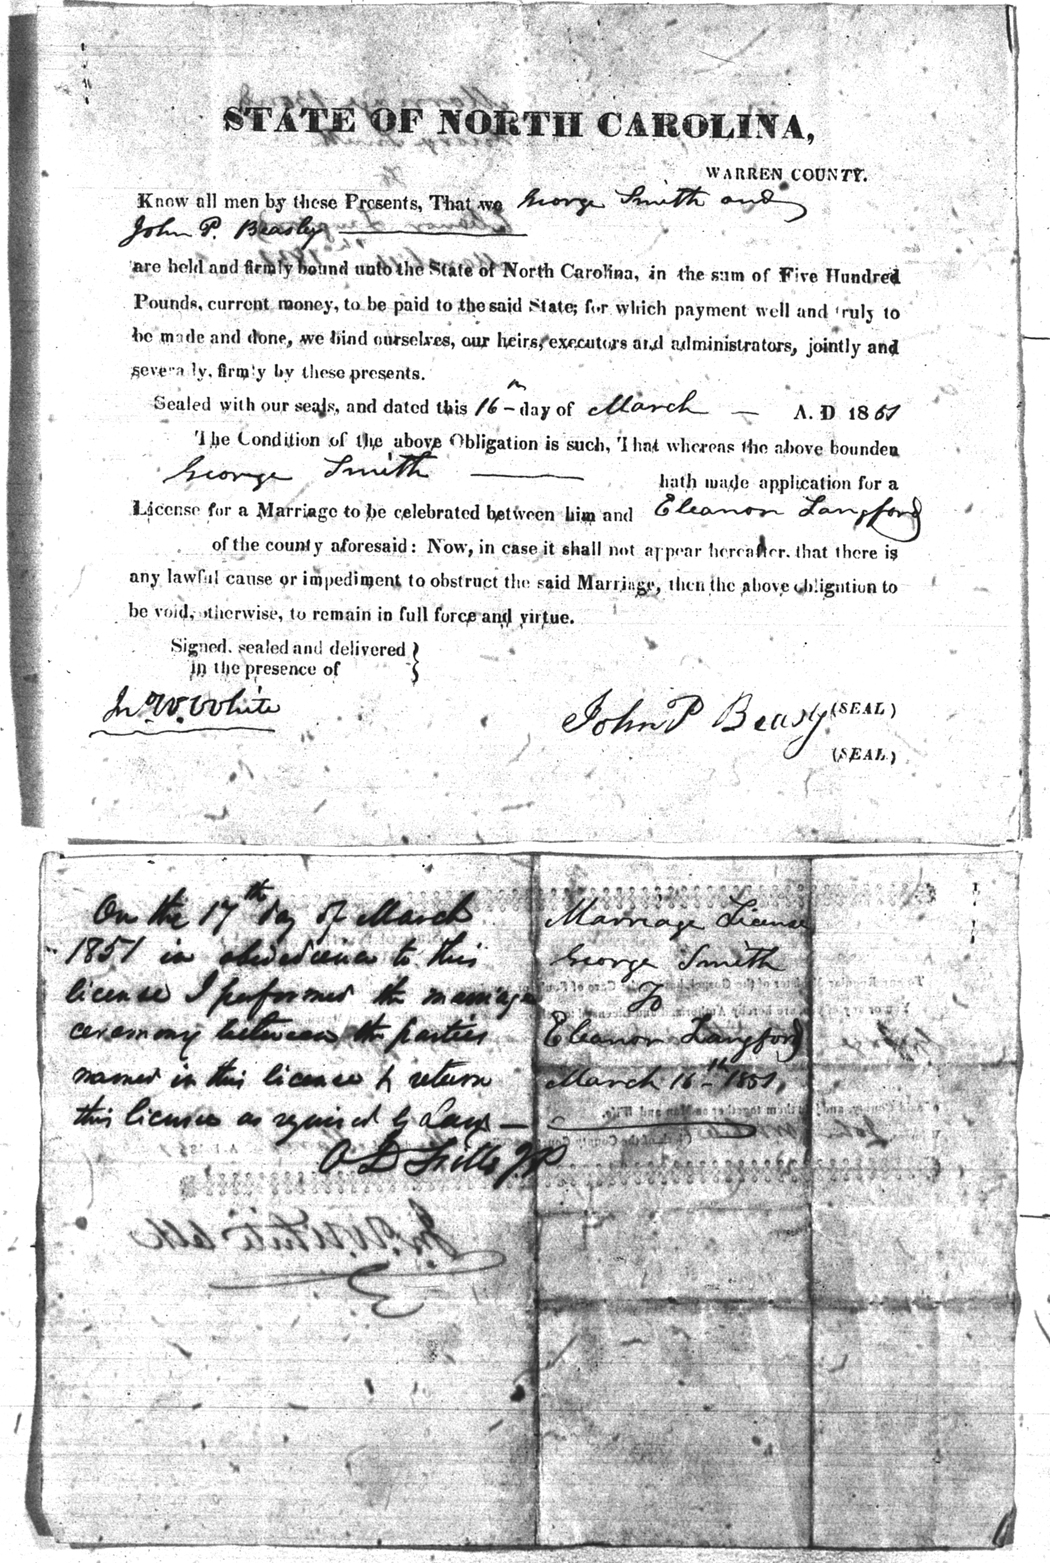 STATE OF NORTH CAROLINA,
WARREN COUNTY.
Know all men by these Presents, That we George Smith and
John P. Beasly
are held and firmly bound unto the State of North Carolina, in the sum of Five Hundred
Pounds, current money, to be paid to the said State; for which payment well and truly to
be made and done, we bind ourselves, our heirs, executors and administrators, jointly and
severally, firmly by these presents.
Sealed with our seals, and dated this 16 - day of March — A. D 1851
The Condition of the above Obligation is such, That whereas the above bounden
George Smith hath made application for a
License for a Marriage to be celebrated between him and Eleanor Langford
of the county aforesaid: Now, in case it shall not appear hereafter, that there is
any lawful cause or impediment to obstruct the said Marriage, then the above obligation to
be void, otherwise, to remain in full force and virtue.
Signed, sealed and delivered
in the presence of
Jn° W. White
John P Beasly (SEAL)
(SEAL)
On the 17th day of March
1851 in obedience to this
license I performed the marriage
ceremony between the parties
named in this license & return
this license as required by Law —
O D Fitts JP
Marriage License
George Smith
To
Eleanor Langford
March 16th 1851,
Jn° W. White clk